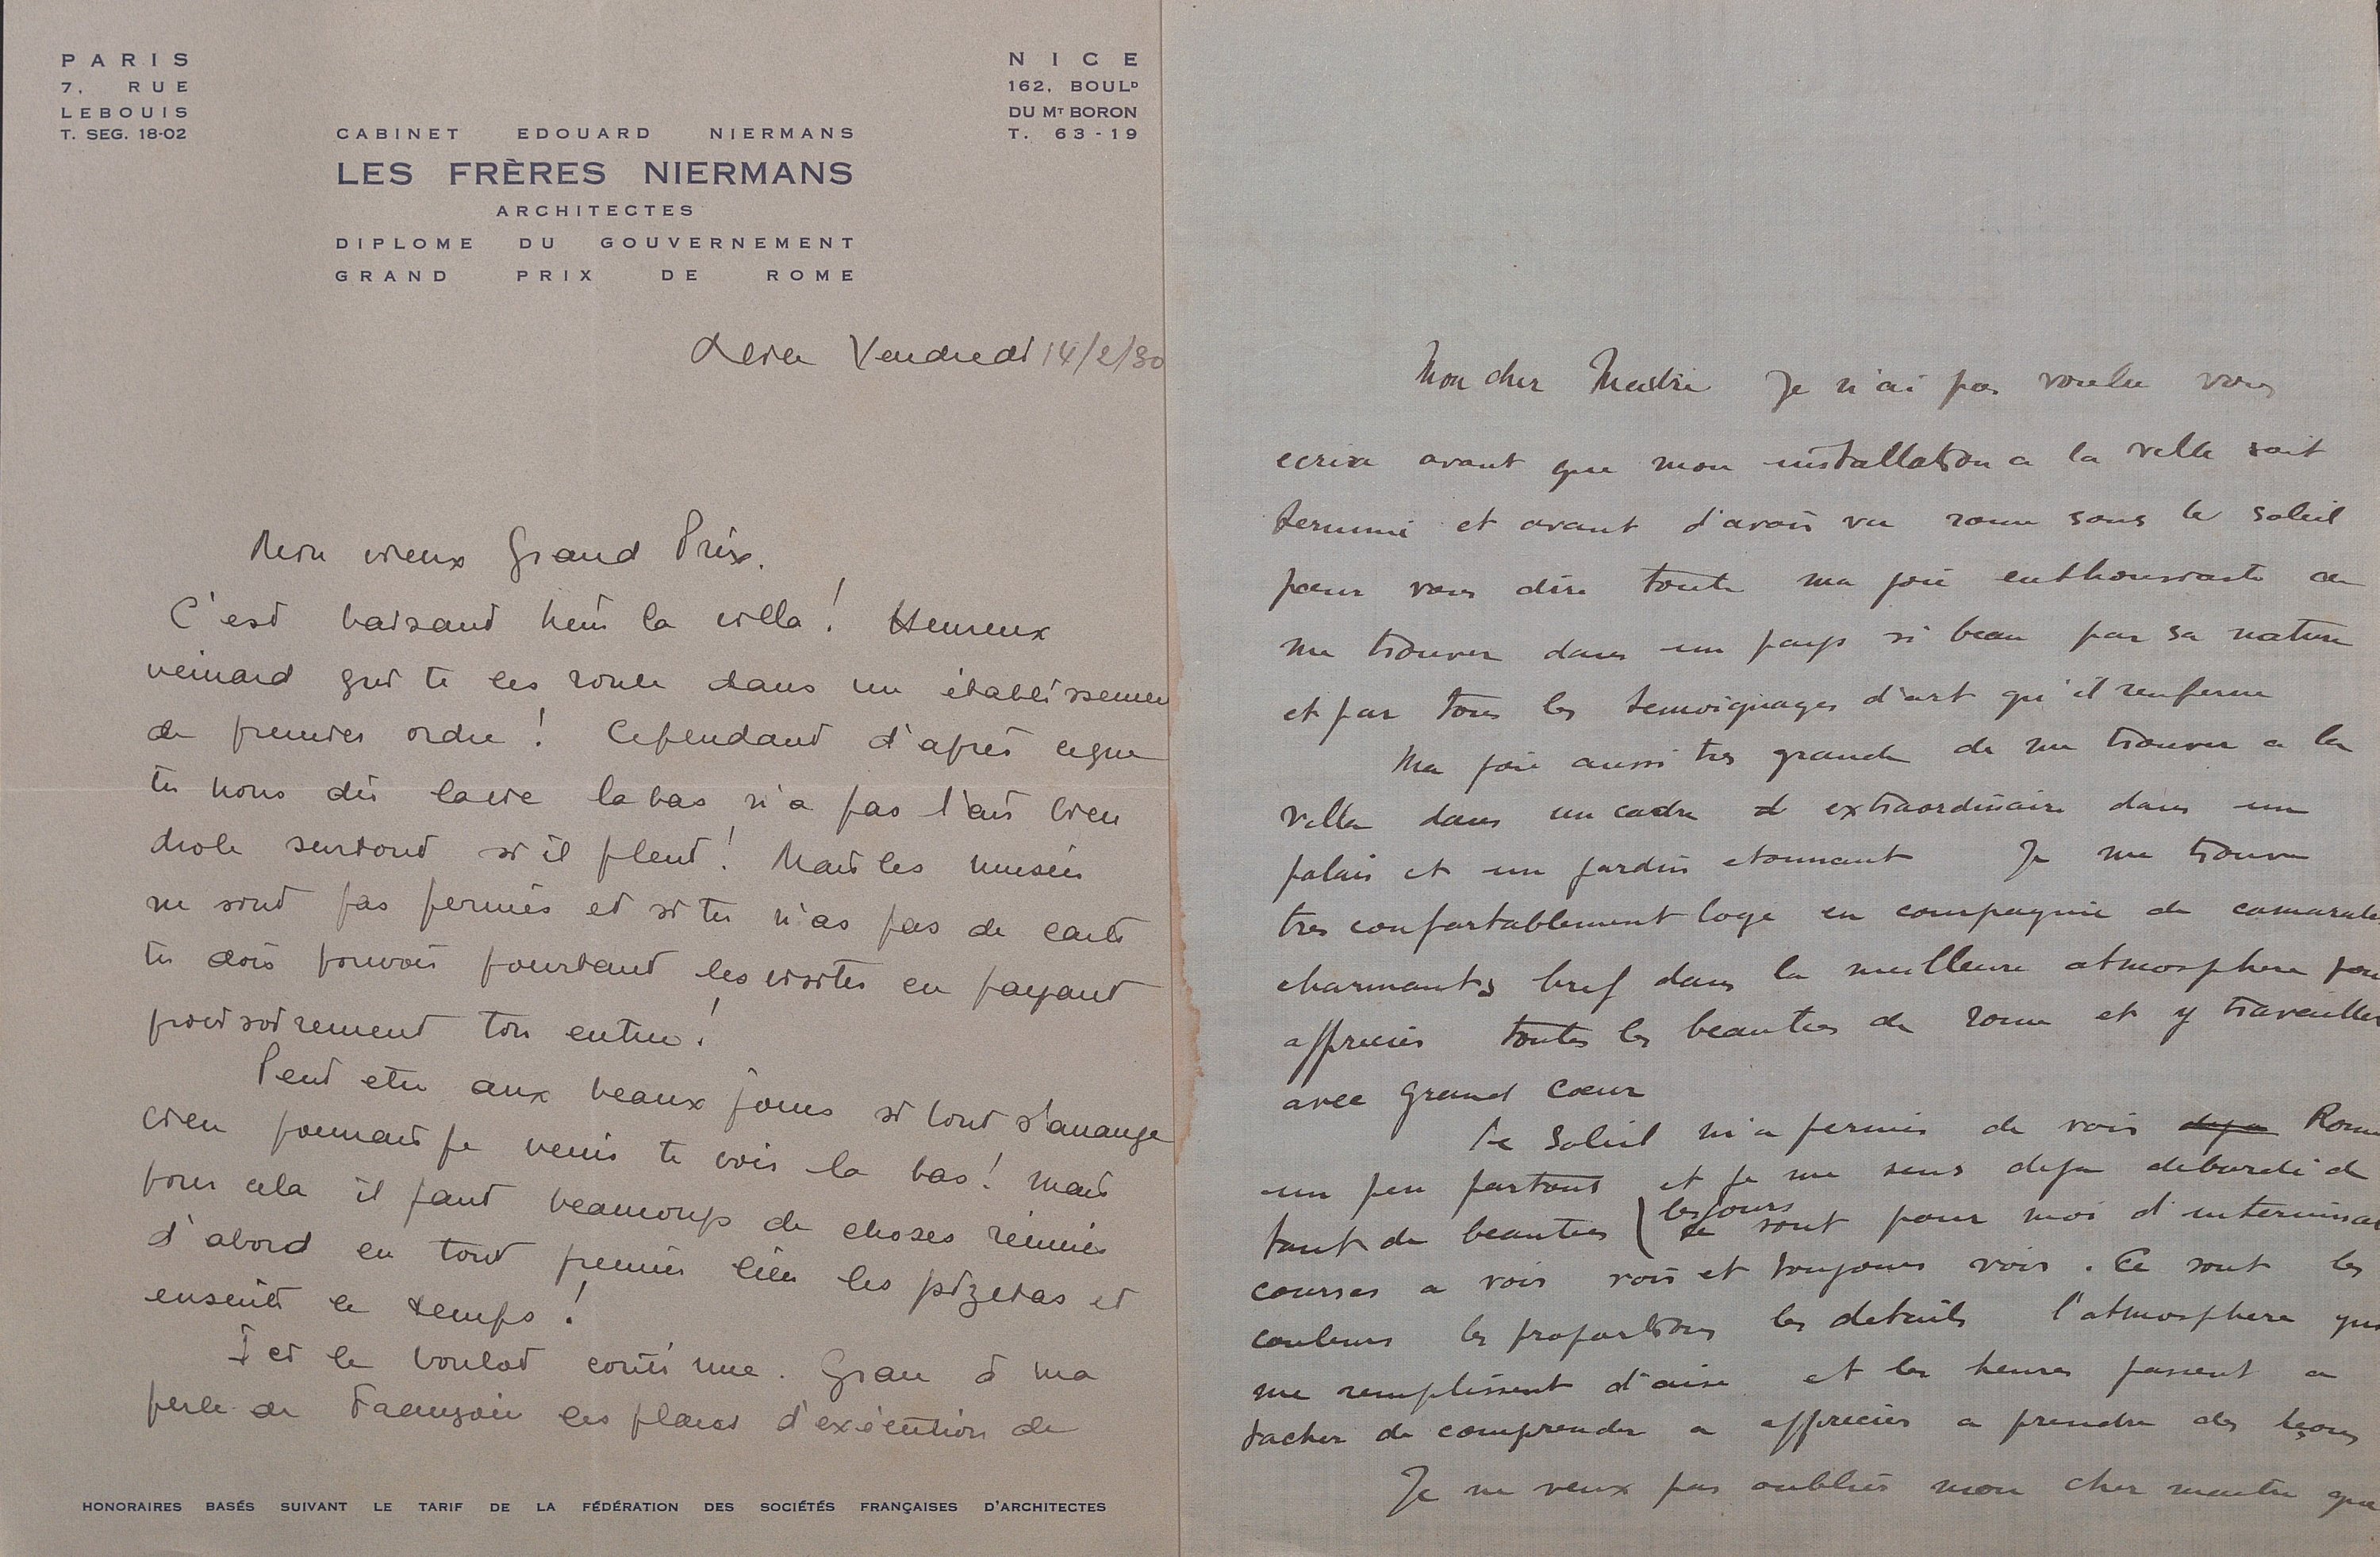 PARIS
7, RUE
LEBOUIS
T. SEG. 18-02
NICE
162, BOULD
DU MT BORON
T. 63-19
CABINET EDOUARD NIERMANS
LES FRÈRES NIERMANS
ARCHITECTES
DIPLOME DU GOUVERNEMENT
GRAND PRIX DE ROME
Vendredi 14/2/30
Mon vieux Grand Prix.
C'est hein la villa! Heureux
veinard qui te les roule dans un établissemen
de premier ordre! Cependant d'après ceque
tu nous dis lavie labas n'a pas l'air bien
drole surtout s'il pleut! Mais les musées
ne sont pas fermés et si tu n'as pas de carte
tu dois pouvoir pourtant les visiter en payant
provisoirement ton entrée!
Peut etre aux beaux jours si tout s'arrange
bien pourrais je venir te voir la bas! mais
pour cela il faut beaucoup de choses réunies
d'abord en tout premier lieu les pizetas et
ensuite le temps!
Ici le boulot continue. Grace à ma
perle de les plans d'exécution de
HONORAIRES BASÉS SUIVANT LE TARIF DE LA FÉDÉRATION DES SOCIÉTÉS FRANÇAISES D'ARCHITECTES
Mon cher Maitre Je n'ai pas voulu vous
ecrire avant que mon installation a la villa soit
terminé et avant d'avoir vu rome sous le soleil
pour vous dire toute ma joie enthousiaste de
me trouver dans un pays si beau par sa nature
et par tous les temoignages d'art qu'il renferme
Ma joie aussi tres grande de me trouver a la
villa dans un cadre extraordinaire dans un
palais et un jardin etonnant Je me trouve
tres confortablement logé en compagnie de camarades
charmants bref dans la meilleure atmosphere pour
apprecier toutes les beautées de rome et y travailler
avec grand cœur
Le Soleil m'a permis de voir deja Rome
un peu partout et je me sens deja debordé de
tant de beautées ( les jours ce sont pour moi d'interminab
courses a voir voir et toujours voir. Ce sont les
couleurs les proportions les details l'atmosphere qui
me remplissent d'aise et les heures passent a
tacher de comprendre a apprecier a prendre des leçons
Je ne veux pas oublier mon cher maitre que